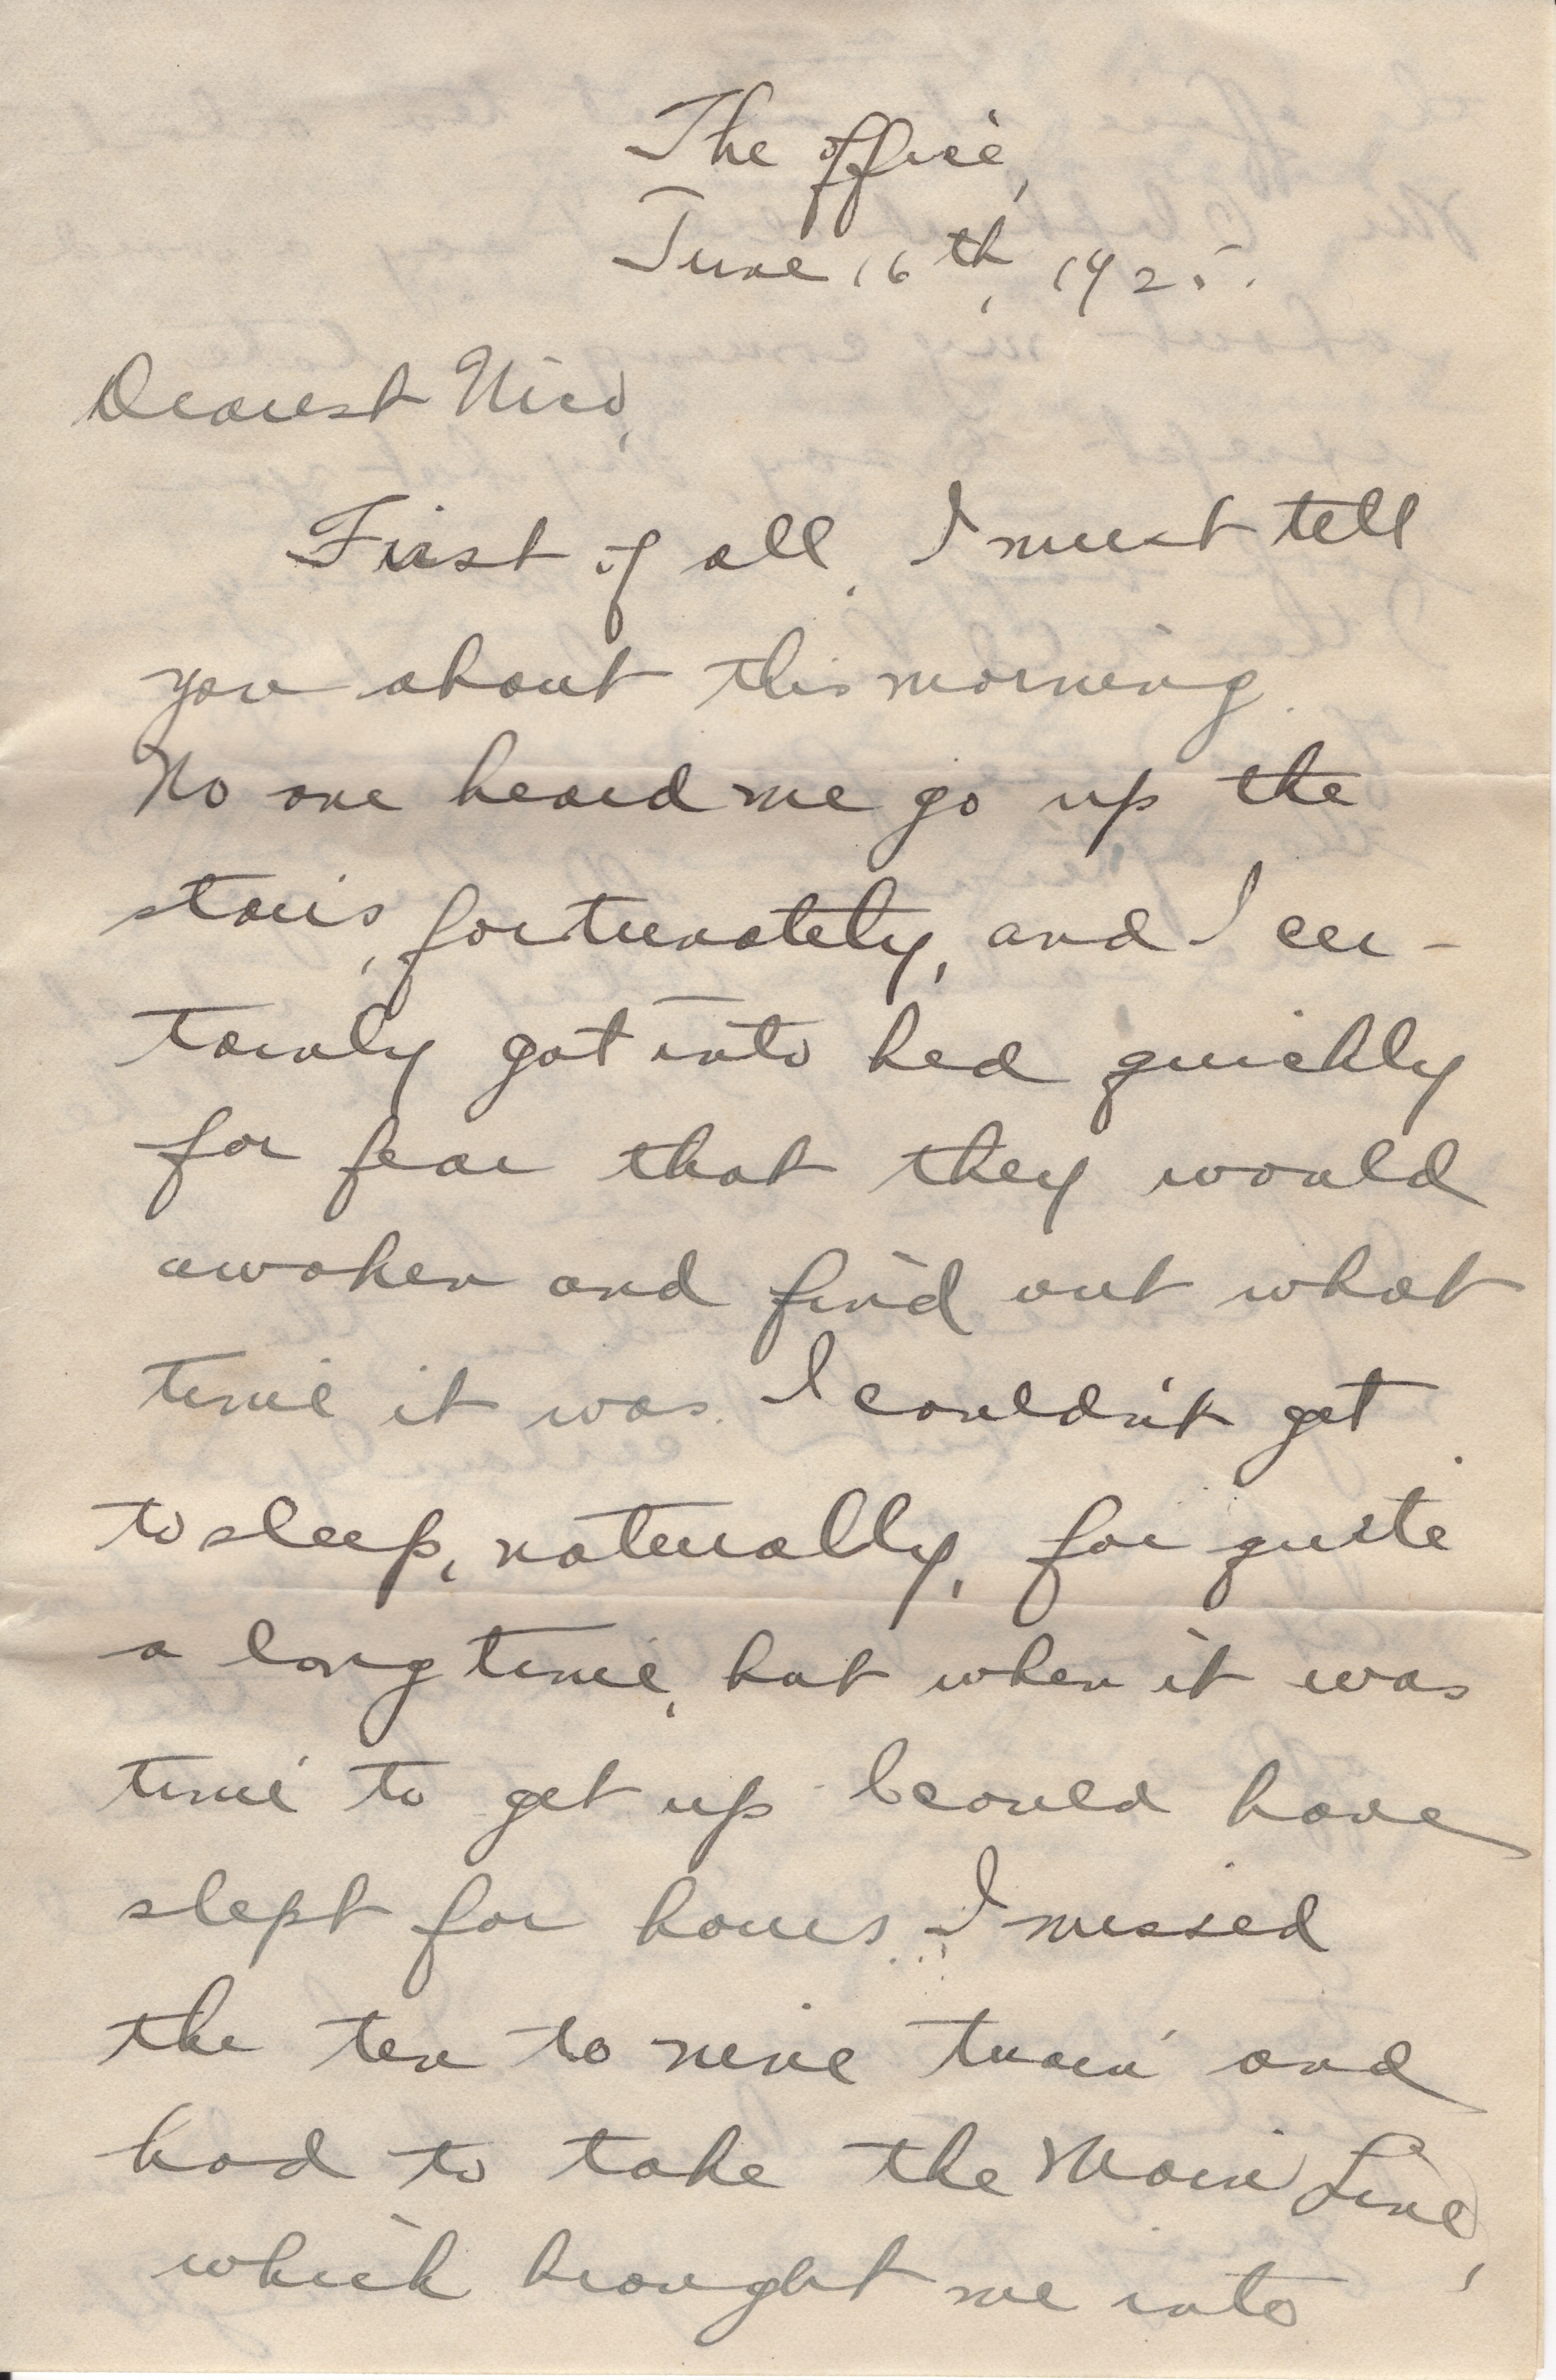 The office,
June 16th, 1925.
Dearest Nico,
First of all, I must tell
you about this morning.
No one heard me go up the
stairs, fortunately, and I cer-
tainly got into bed quickly
for fear that they would
awaken and find out what
time it was. I couldn't get
to sleep, naturally, for quite
a long time, but when it was
time to get up I could have
slept for hours. I missed
the ten to nine train and
had to take the Main Line,
which brought me into